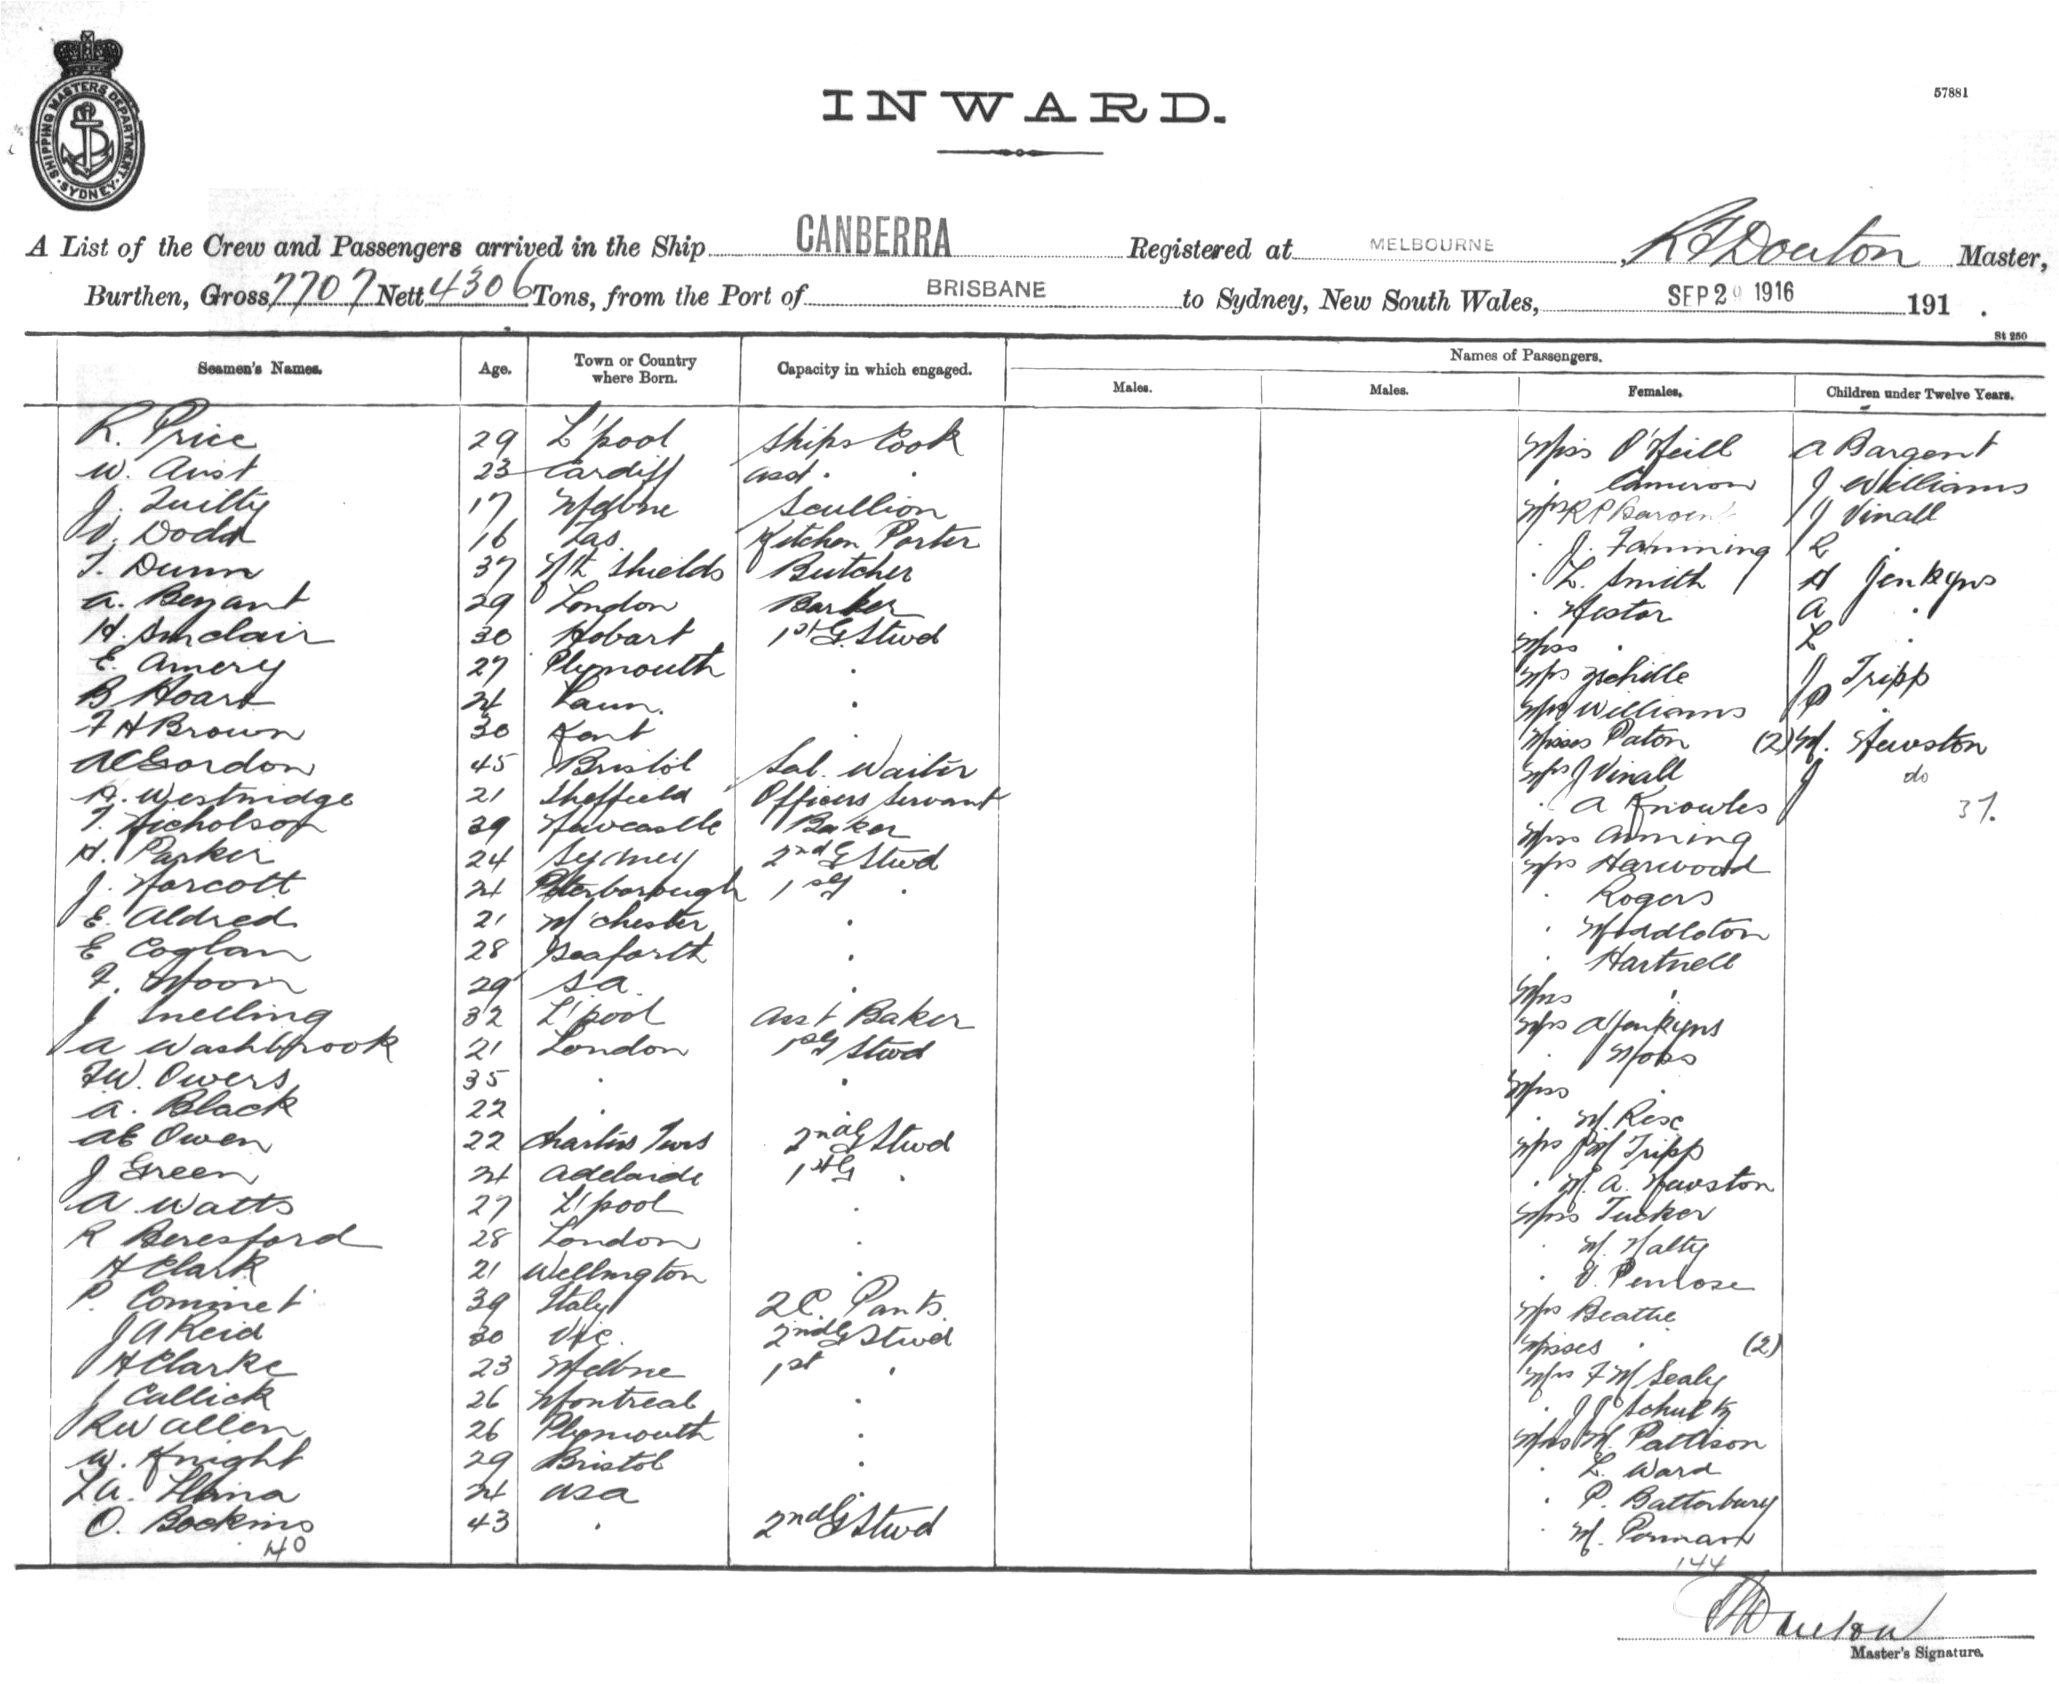 SHIPPING MASTERS DEPARTMENT · SYDNEY ·
INWARD.
57881
A List of the Crew and Passengers arrived in the Ship CANBERRA Registered at MELBOURNE, R F Douton Master,
Burthen, Gross 7707 Nett 4306 Tons, from the Port of BRISBANE to Sydney, New South Wales, SEP 29 1916 191 .
St 250
Seamen's Names. Age. Town or Country where Born. Capacity in which engaged. Names of Passengers.
Males. Males. Females. Children under Twelve Years.
R. Price 29 L'pool Ships Cook Miss O'Neill A Bargent
W. Aust 23 Cardiff asst . . . Cameron J Williams
J. Quilty 17 Melbne Scullion Mrs R P Bargent J Vinall
V. Dodd 16 Tas. Kitchen Porter . J. Fanning R
T. Dunn 37 Nth Shields Butcher . L. Smith H Jenkyns
A. Bryant 29 London Barker . Nestor A .
H. Sinclair 30 Hobart 1st G. Stwd Miss . L .
E. Amery 27 Plymouth . Mrs J Tripp
B Hoare 24 Laun. . Mrs Williams P .
F H Brown 30 Kent . Misses Paton (2) M. Hewston
A C Gordon 45 Bristol Sal. Waiter Mrs J Vinall J do
A. Westnidge 21 Sheffield Officers Servant . A Knowles 37.
T. Nicholson 39 Newcastle Baker Miss Arming
H. Parker 24 Sydney 2nd G Stwd Mrs Harwood
J. Norcott 24 Peterborough 1st G . . Rogers
E. Aldred 21 M'chester . . Middleton
E Coglan 28 Seaforth . . Hartnell
F. Moon 29 S.A. . Miss .
J Snelling 32 L'pool asst Baker Mrs A Jenkyns
A Washbrook 21 London 1st G Stwd . Moss
F.W. Owers 35 . . Miss .
A. Black 22 . . M. Rise
A E Owen 22 Charters Twrs 2nd G Stwd Mrs P M Tripp
J Green 24 Adelaide 1st G . . M. A. Hewston
A Watts 27 L'pool . Miss Tucker
R Beresford 28 London . . M. Nalty
H Clark 21 Wellington . . V. Penrose
P. Cominet 39 Italy 2C. Pants. Mrs Beattie
J A Reid 30 Vic. 2nd G Stwd Misses . (2)
H Clarke 23 Melbne 1st . Mrs F M Sealy
J Callick 26 Montreal . . J J Schultz
R W Allen 26 Plymouth . Miss M. Pattison
W. Knight 29 Bristol . . L. Ward
L.A. 24 USA . . P. Batterbury
O. Bockins 43 . 2nd G Stwd . M. Penman
40 144
R F Douton
Master's Signature.